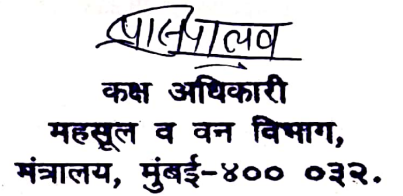 कक्ष अधिकारी
महसूल व वन विभाग,
मंत्रालय, मुंबई-४०० ०३२.